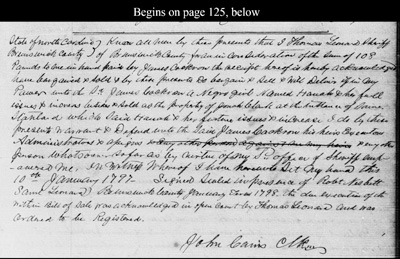 Begins on page 125, below
State of north Carolina } Know all men by these presents that I Thomas Leonard Sheriff
Brunswick County } of Brunswick County for & in Consideration of the Sum of 108
Pounds to me in hand paid by James Cookson the receipt hereof is hereby acknowledged
have bargained & sold & by these presents do bargain & Sell & Will Deliver of in my
Power unto the Sd James Cookson a Negro girl Named Hanah & her full
issues & increase which is Sold as the property of Jonah Clark at the instance of
which Said Hanah & her future issues & increase I do by these
presents Warrant & Defend unto the Said James Cookson his heirs Executors
Administrators & assigns & any other
person Whatsoever So far as by Virtue of my Sd office of Sheriff
me. In Witness Whereof I have hereunto Set my hand this
10th January 1797 Signed Sealed in presence of Robt Nesbett
Saml Leonard Brunswick County January Term 1798. the due execution of the
within Bill of Sale was acknowledged in open Court by Thomas Leonard and was
ordered to be Registered.
John Cains Clk